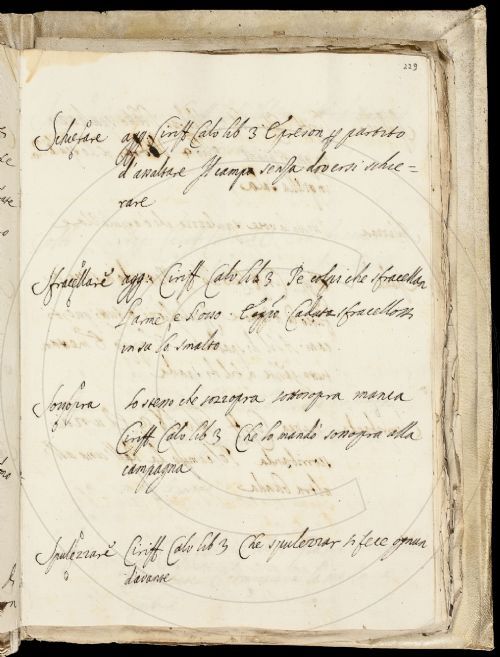 229
Schierare agg. Ciriff Calv lib 3 E preson p partito
d'assaltare Il campo senza doversi schie=
rare
Sfracellare agg. Ciriff Calv lib 3 Pe colpi che sfracellan
l'arme e l'osso Caduta sfracellossi
in su lo smalto
Sossopra lo stesso che sozzopra sottosopra manca
Ciriff Calv lib 3 Che lo mandò sossopra alla
campagna
Spulezzare Ciriff Calv lib 3 Che spulezzar si fece ognun
davante